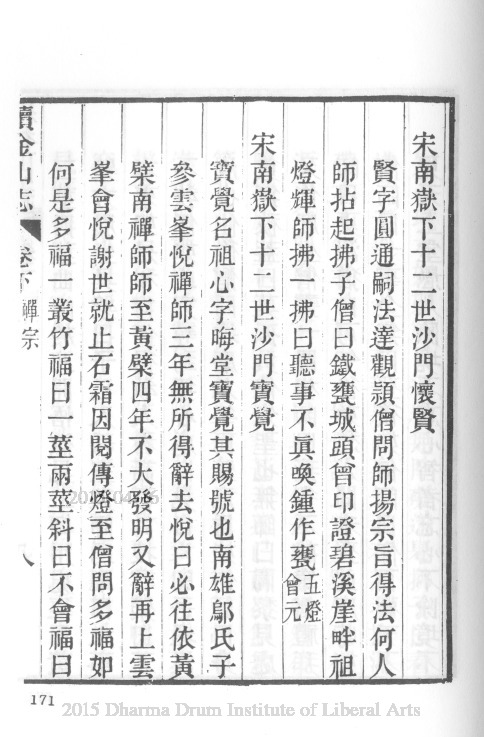 宋南嶽下十二世沙門懷賢
賢字圓通嗣法達觀頴僧問師揚宗旨得法何人
師拈起拂子僧曰鐵甕城頭曾印證碧溪崖畔祖
燈輝師拂一拂曰聽事不眞喚鍾作甕五燈會元
宋南嶽下十二世沙門寶覺
寶覺名祖心字晦堂寶覺其賜號也南雄鄔氏子
參雲峯悅禪師三年無所得辭去悅曰必往依黃
檗南禪師師至黃檗四年不大發明又辭再上雲
峯會悅謝世就止石霜因閱傳燈至僧問多福如
何是多福一叢竹福曰一莖兩莖斜曰不會福曰
續金山志 卷下 禪宗 八
171
2015 Dharma Drum Institute of Liberal Arts